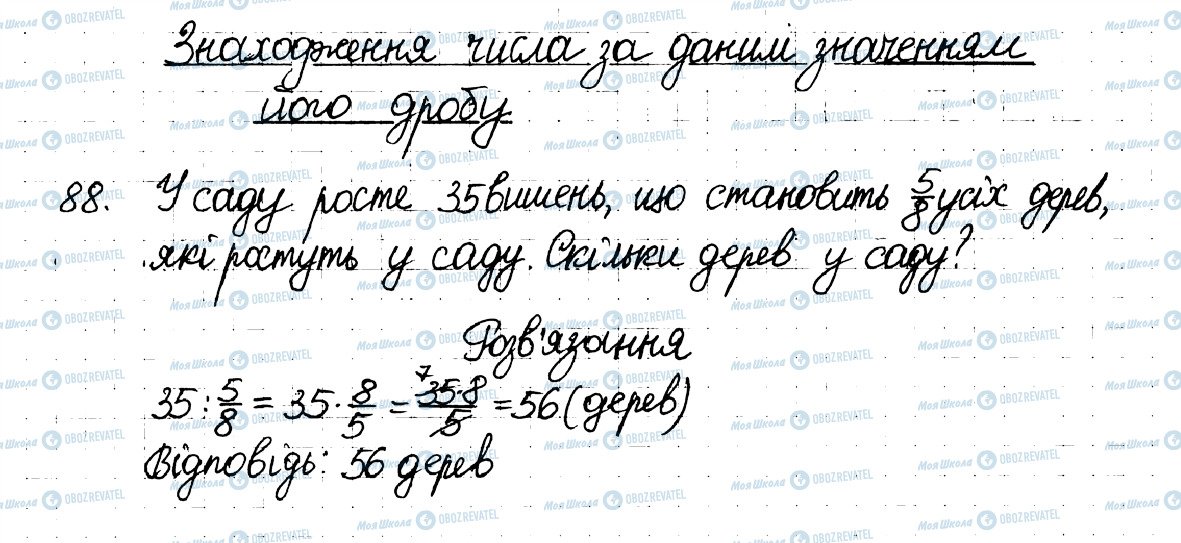 Знаходження числа за даним значенням
його дробу
88. У саду росте 35 вишень, що становить 5/8 усіх дерев,
які ростуть у саду. Скільки дерев у саду?
Розв'язання
35 : 5/8 = 35 · 8/5 = 35·8/5 = 56 (дерев)
Відповідь: 56 дерев